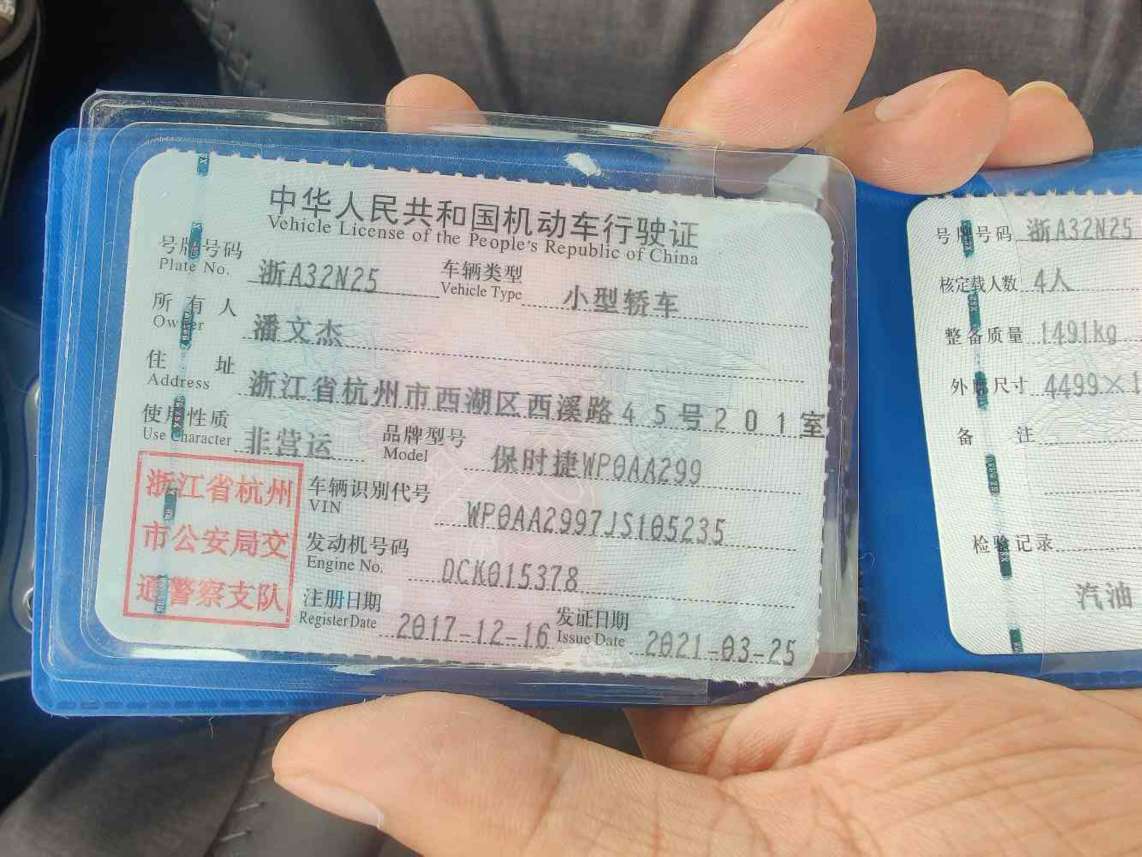 中华人民共和国机动车行驶证
Vehicle License of the People's Republic of China
号牌号码 浙A32N25 车辆类型 小型轿车
Plate No. Vehicle Type
所有人 潘文杰
Owner
住址 浙江省杭州市西湖区西溪路45号201室
Address
使用性质 非营运 品牌型号 保时捷WP0AA299
Use Character Model
浙江省杭州
市公安局交
通警察支队
车辆识别代号 WP0AA2997JS105235
VIN
发动机号码 DCK015378
Engine No.
注册日期 2017-12-16 发证日期 2021-03-25
Register Date Issue Date
号牌号码 浙A32N25
核定载人数 4人
整备质量 1491kg
外廓尺寸 4499×1
备注
检验记录
汽油